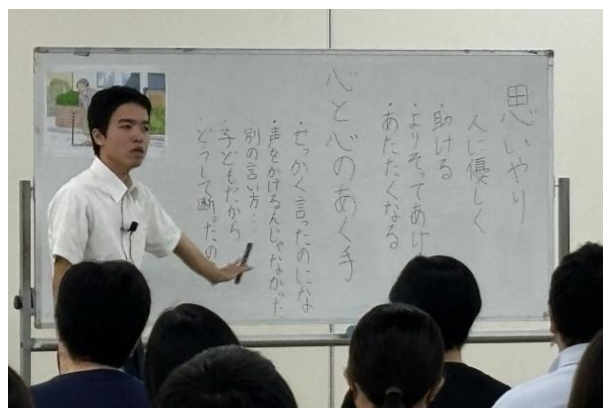 思いやり
・人に優しく
・助ける
・よりそってあげ
・あたたくなる
心と心のあく手
・せっかく言ったのにな
・声をかけるんじゃなかった
・別の言い方…
・子どもだから
・どうして断ったの